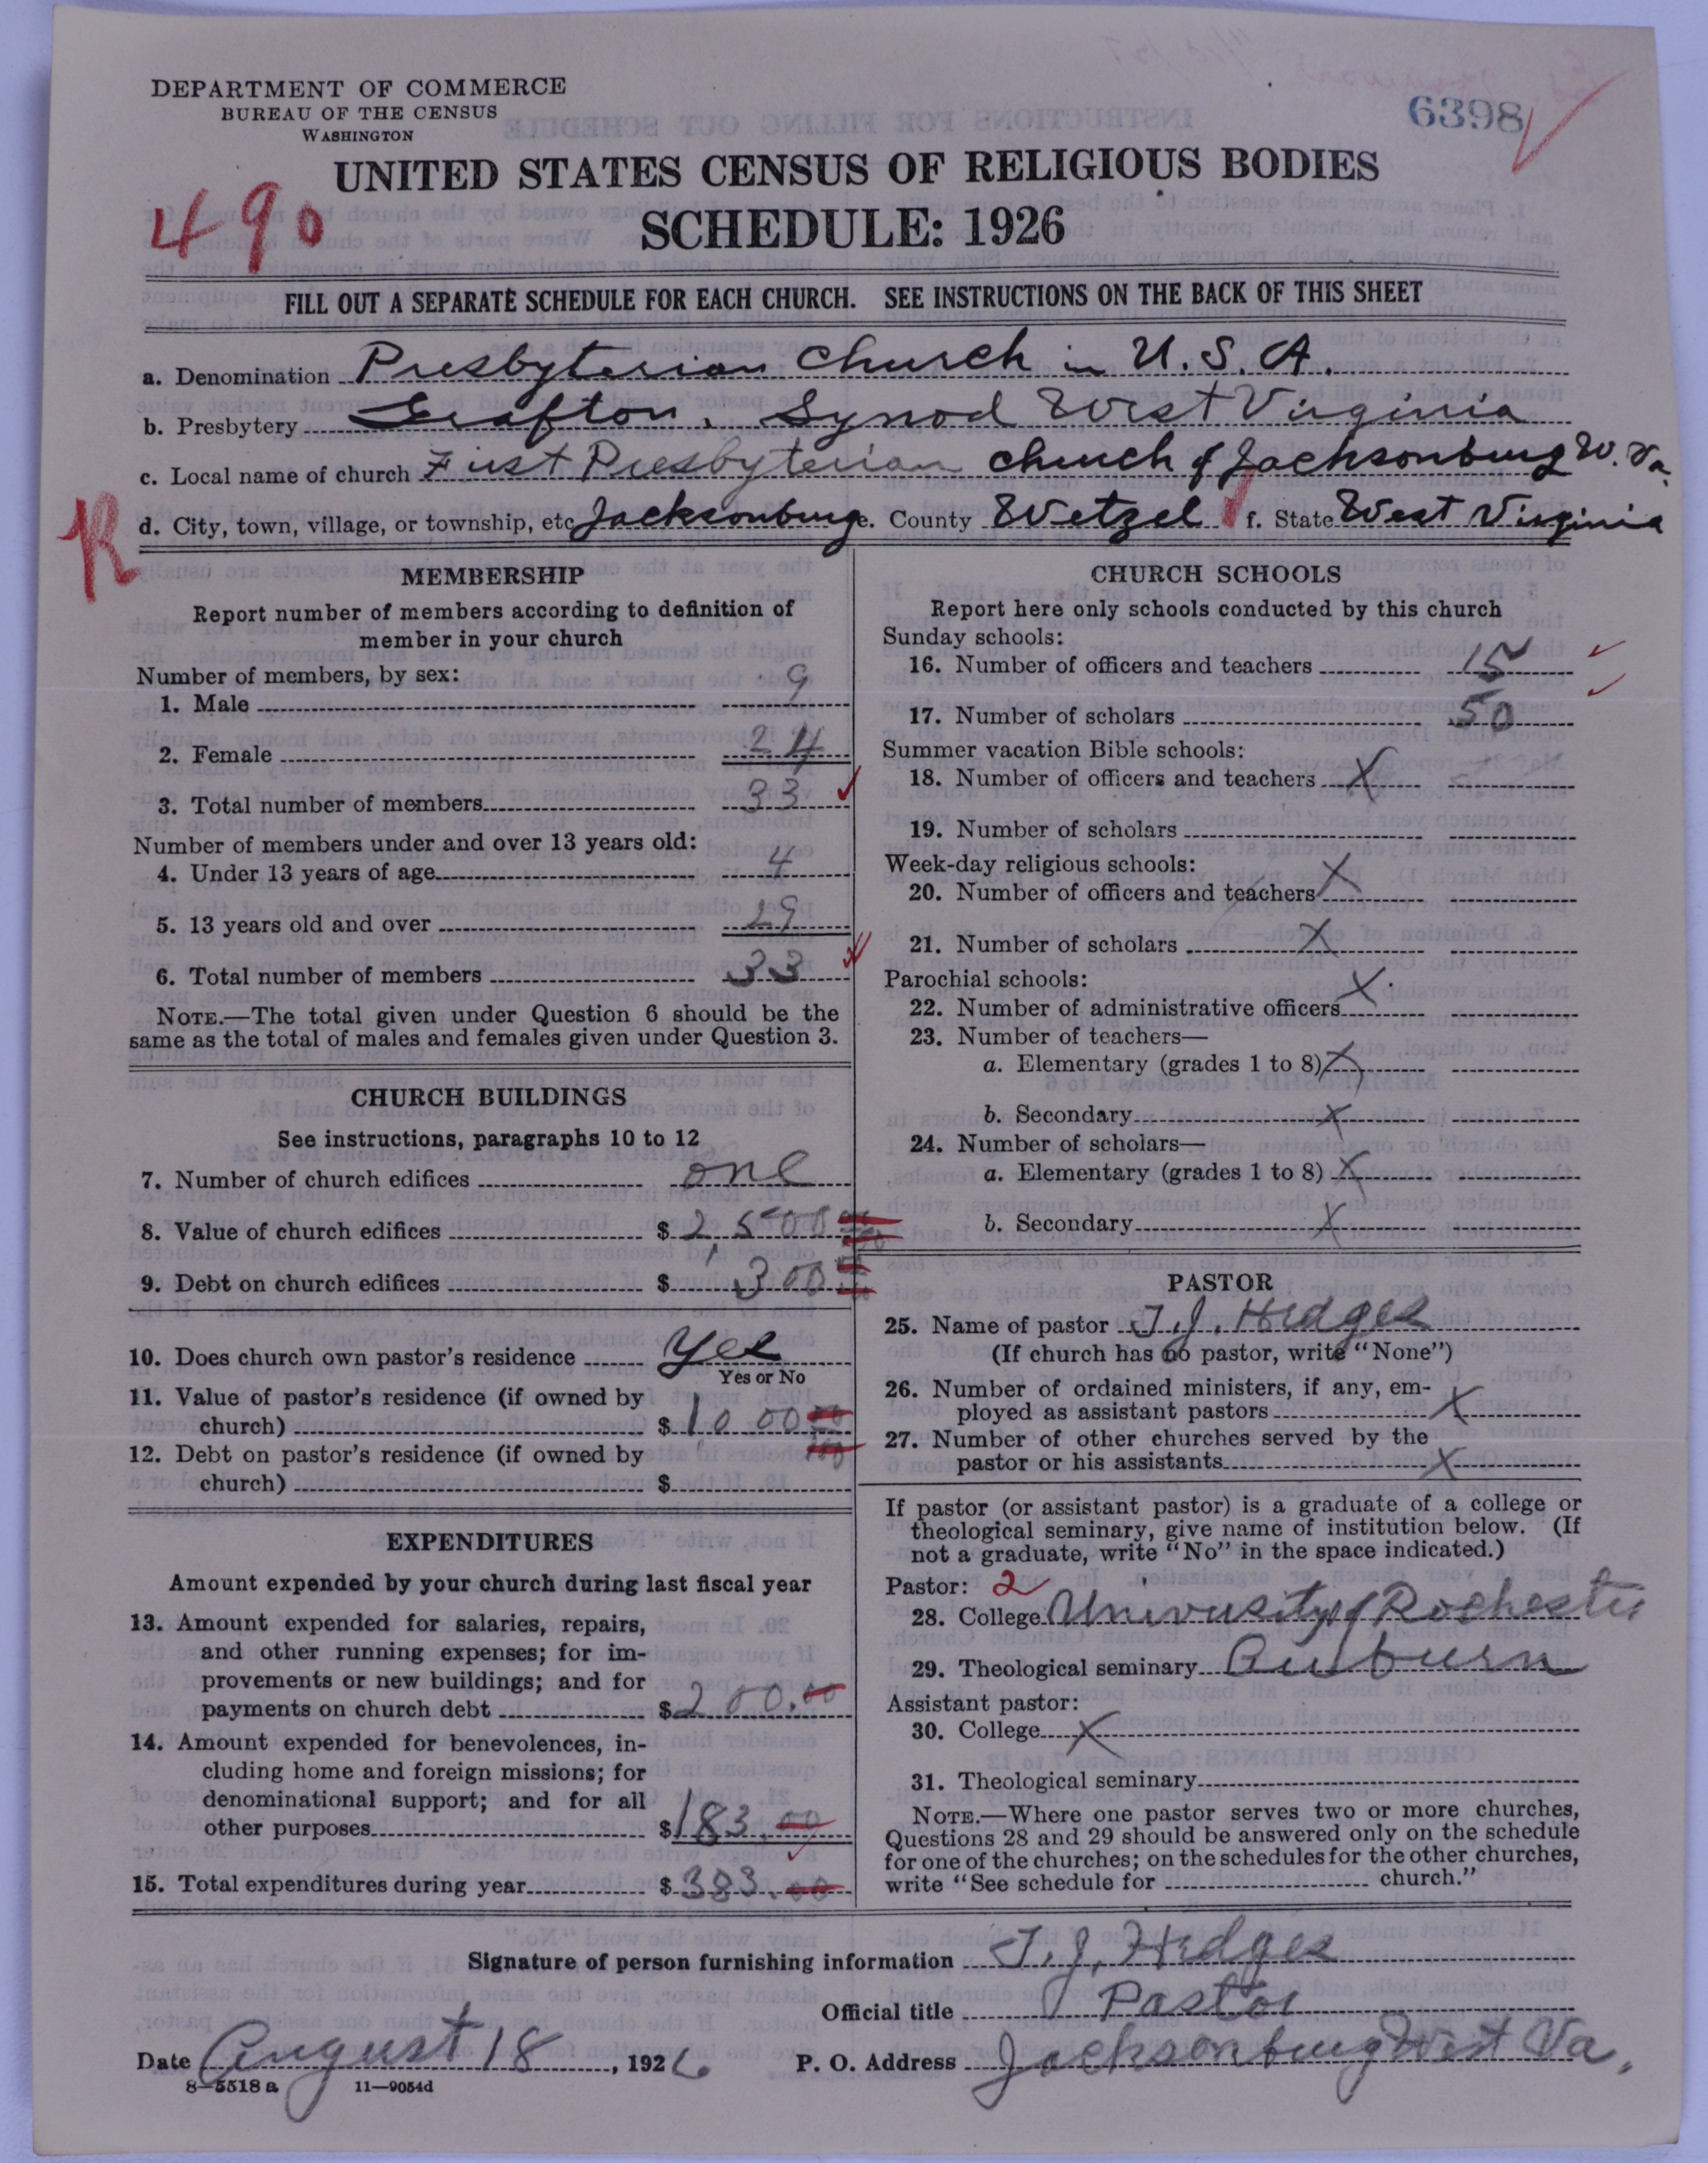 DEPARTMENT OF COMMERCE
BUREAU OF THE CENSUS
WASHINGTON
6398
UNITED STATES CENSUS OF RELIGIOUS BODIES
490
SCHEDULE: 1926
FILL OUT A SEPARATE SCHEDULE FOR EACH CHURCH. SEE INSTRUCTIONS ON THE BACK OF THIS SHEET
a. Denomination Presbyterian Church in U.S.A.
b. Presbytery Grafton, Synod West Virginia
c. Local name of church First Presbyterian church of Jacksonburg W. Va.
R
d. City, town, village, or township, etc. Jacksonburg e. County Wetzel f. State West Virginia
MEMBERSHIP
Report number of members according to definition of
member in your church
Number of members, by sex:
1. Male 9
2. Female 24
3. Total number of members 33
Number of members under and over 13 years old:
4. Under 13 years of age 4
5. 13 years old and over 29
6. Total number of members 33
NOTE.—The total given under Question 6 should be the
same as the total of males and females given under Question 3.
CHURCH BUILDINGS
See instructions, paragraphs 10 to 12
7. Number of church edifices one
8. Value of church edifices $ 2,500 00
9. Debt on church edifices $ 300 00
10. Does church own pastor's residence Yes
Yes or No
11. Value of pastor's residence (if owned by
church) $ 1000 00
12. Debt on pastor's residence (if owned by
church) $
EXPENDITURES
Amount expended by your church during last fiscal year
13. Amount expended for salaries, repairs,
and other running expenses; for im-
provements or new buildings; and for
payments on church debt $ 200.00
14. Amount expended for benevolences, in-
cluding home and foreign missions; for
denominational support; and for all
other purposes $ 183.00
15. Total expenditures during year $ 383.00
CHURCH SCHOOLS
Report here only schools conducted by this church
Sunday schools:
16. Number of officers and teachers 15
17. Number of scholars 50
Summer vacation Bible schools:
18. Number of officers and teachers X
19. Number of scholars
Week-day religious schools:
20. Number of officers and teachers X
21. Number of scholars X
Parochial schools:
22. Number of administrative officers X
23. Number of teachers—
a. Elementary (grades 1 to 8) X
b. Secondary X
24. Number of scholars—
a. Elementary (grades 1 to 8) X
b. Secondary X
PASTOR
25. Name of pastor T. J. Hedges
(If church has no pastor, write "None")
26. Number of ordained ministers, if any, em-
ployed as assistant pastors X
27. Number of other churches served by the
pastor or his assistants X
If pastor (or assistant pastor) is a graduate of a college or
theological seminary, give name of institution below. (If
not a graduate, write "No" in the space indicated.)
Pastor: 2
28. College University of Rochester
29. Theological seminary Auburn
Assistant pastor:
30. College X
31. Theological seminary
NOTE.—Where one pastor serves two or more churches,
Questions 28 and 29 should be answered only on the schedule
for one of the churches; on the schedules for the other churches,
write "See schedule for church."
Signature of person furnishing information T. J. Hedges
Official title Pastor
Date August 18, 1926 P. O. Address Jacksonburg West Va.
8—5518 a 11—9054d